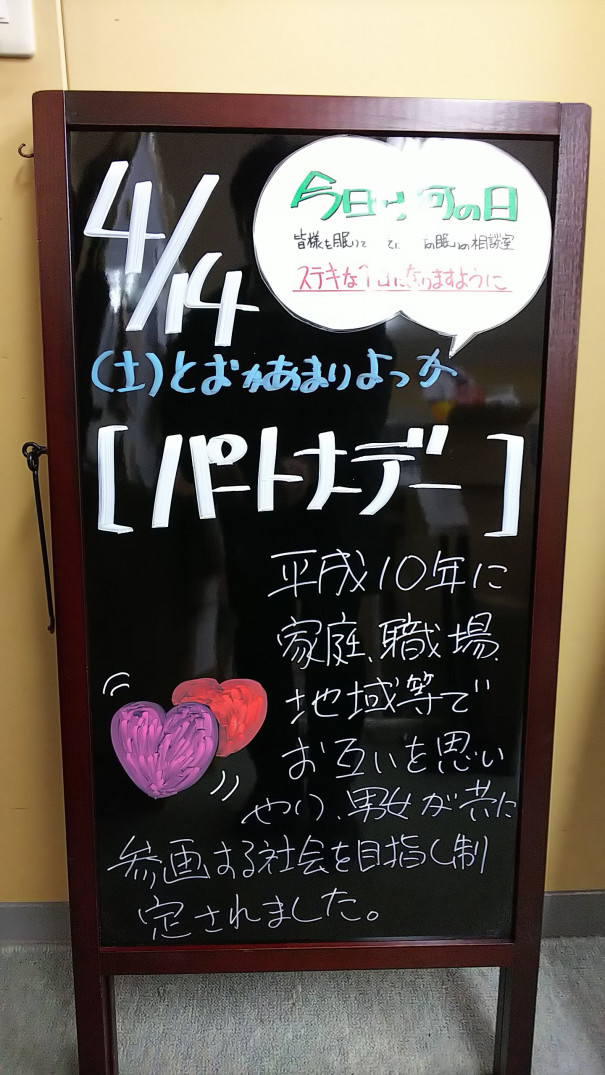 4/14
今日は何の日
皆様を眠りで の眠りの相談室
ステキな1日になりますように
(土)とおかあまりよっか
[パートナーデー]
平成10年に
家庭、職場、
地域等で
お互いを思い
やり、男女が共に
参画する社会を目指し制
定されました。